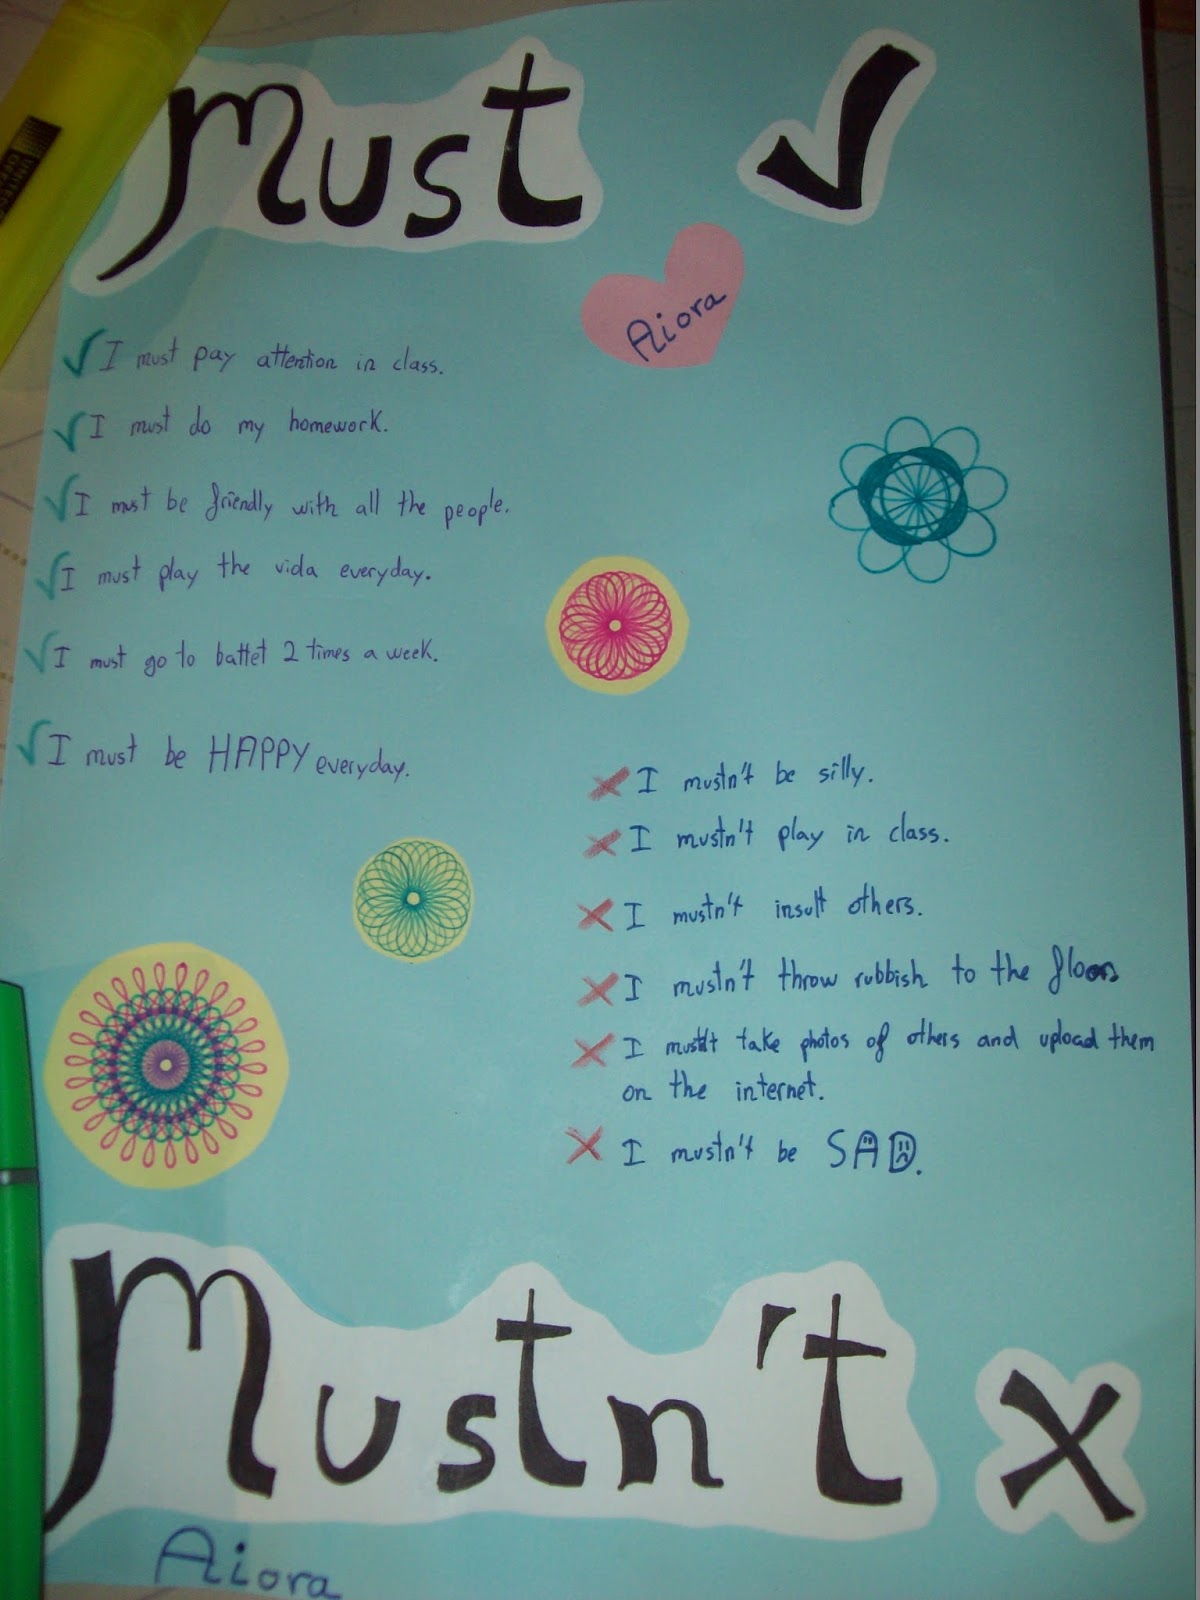 Must ✓
Aiora
✓ I must pay attention in class.
✓ I must do my homework.
✓ I must be friendly with all the people.
✓ I must play the vida everyday.
✓ I must go to battet 2 times a week.
✓ I must be HAPPY everyday.
✗ I mustn't be silly.
✗ I mustn't play in class.
✗ I mustn't insult others.
✗ I mustn't throw rubbish to the floor
✗ I mustn't take photos of others and upload them
on the internet.
✗ I mustn't be SAD.
Mustn't X
Aiora